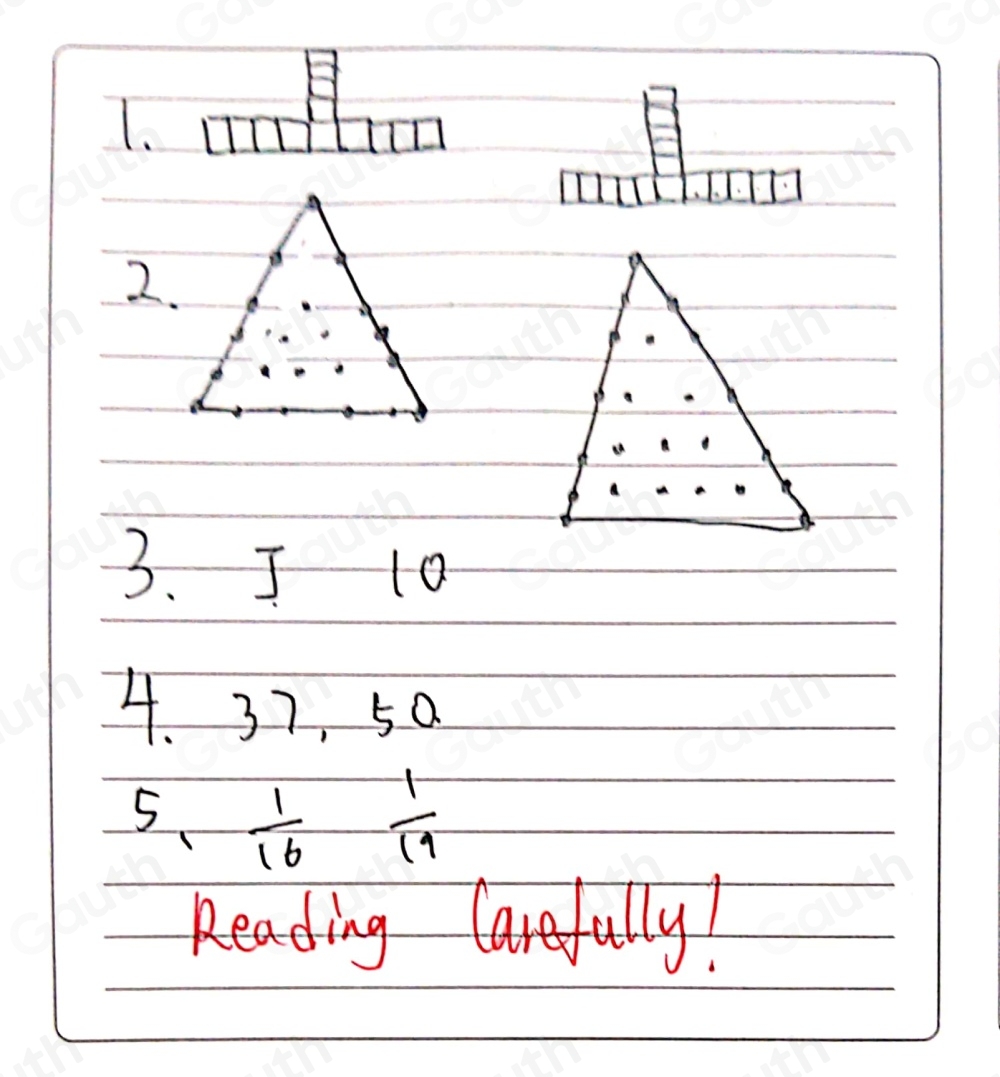 1.
2.
3. J 10
4. 37, 50
5、 1/16 1/19
Reading Carefully!
Gauth